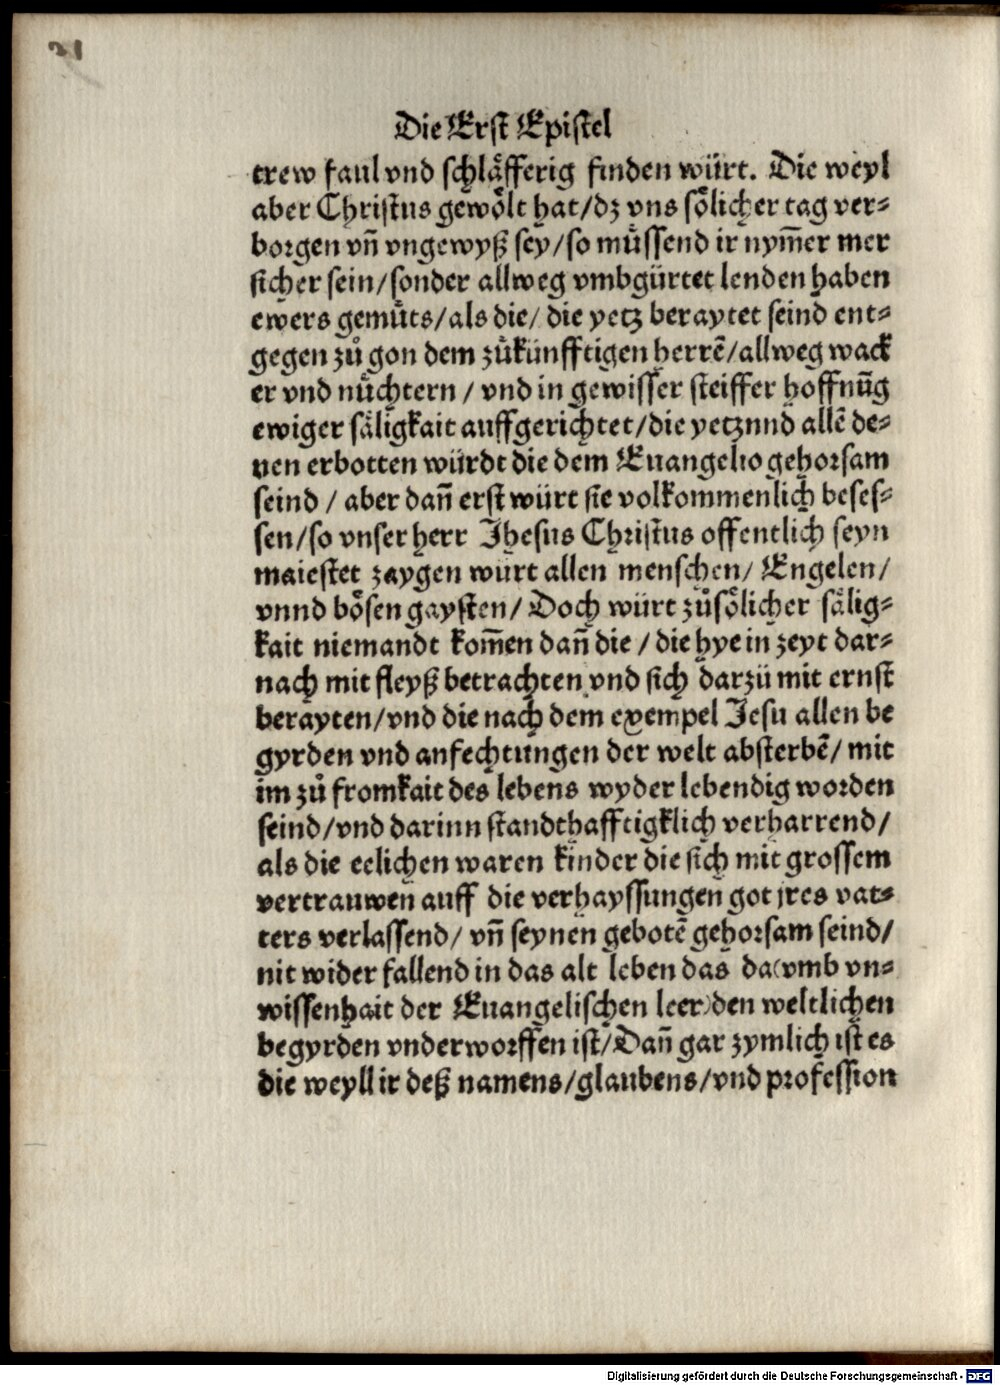 Die Erst Epistel
trew faul vnd schläfferig finden würt. Die weyl
aber Christus gewölt hat/dz vns sölicher tag ver⸗
borgen vñ vngewyß sey/so müssend ir nym̃er mer
sicher sein/sonder allweg vmbgürtet lenden haben
ewers gemůts/als die/ die yetz beraytet seind ent⸗
gegen zů gon dem zůkünfftigen herrẽ/allweg wack
er vnd nüchtern / vnd in gewisser steiffer hoffnũg
ewiger säligkait auffgerichtet/die yetznnd allẽ de⸗
nen erbotten würdt die dem Euangelio gehorsam
seind / aber dañ erst würt sie volkommenlich beses⸗
sen/so vnser herr Jhesus Christus offentlich seyn
maiestet zaygen würt allen menschen/ Engelen/
vnnd bösen gaysten/ Doch würt zůsölicher sälig⸗
kait niemandt kom̃en dañ die / die hye in zeyt dar⸗
nach mit fleyß betrachten vnd sich darzů mit ernst
berayten/vnd die nach dem exempel Jesu allen be
gyrden vnd anfechtungen der welt absterbẽ/ mit
im zů fromkait des lebens wyder lebendig worden
seind/vnd darinn standthafftigklich verharrend/
als die eelichen waren kinder die sich mit grossem
vertrauwen auff die verhayssungen got jres vat⸗
ters verlassend/ vñ seynen gebotẽ gehorsam seind/
nit wider fallend in das alt leben das da(vmb vn⸗
wissenhait der Euangelischen leer)den weltlichen
begyrden vnderworffen ist/Dañ gar zymlich ist es
die weyll ir deß namens/glaubens/vnd profession
Digitalisierung gefördert durch die Deutsche Forschungsgemeinschaft - DFG